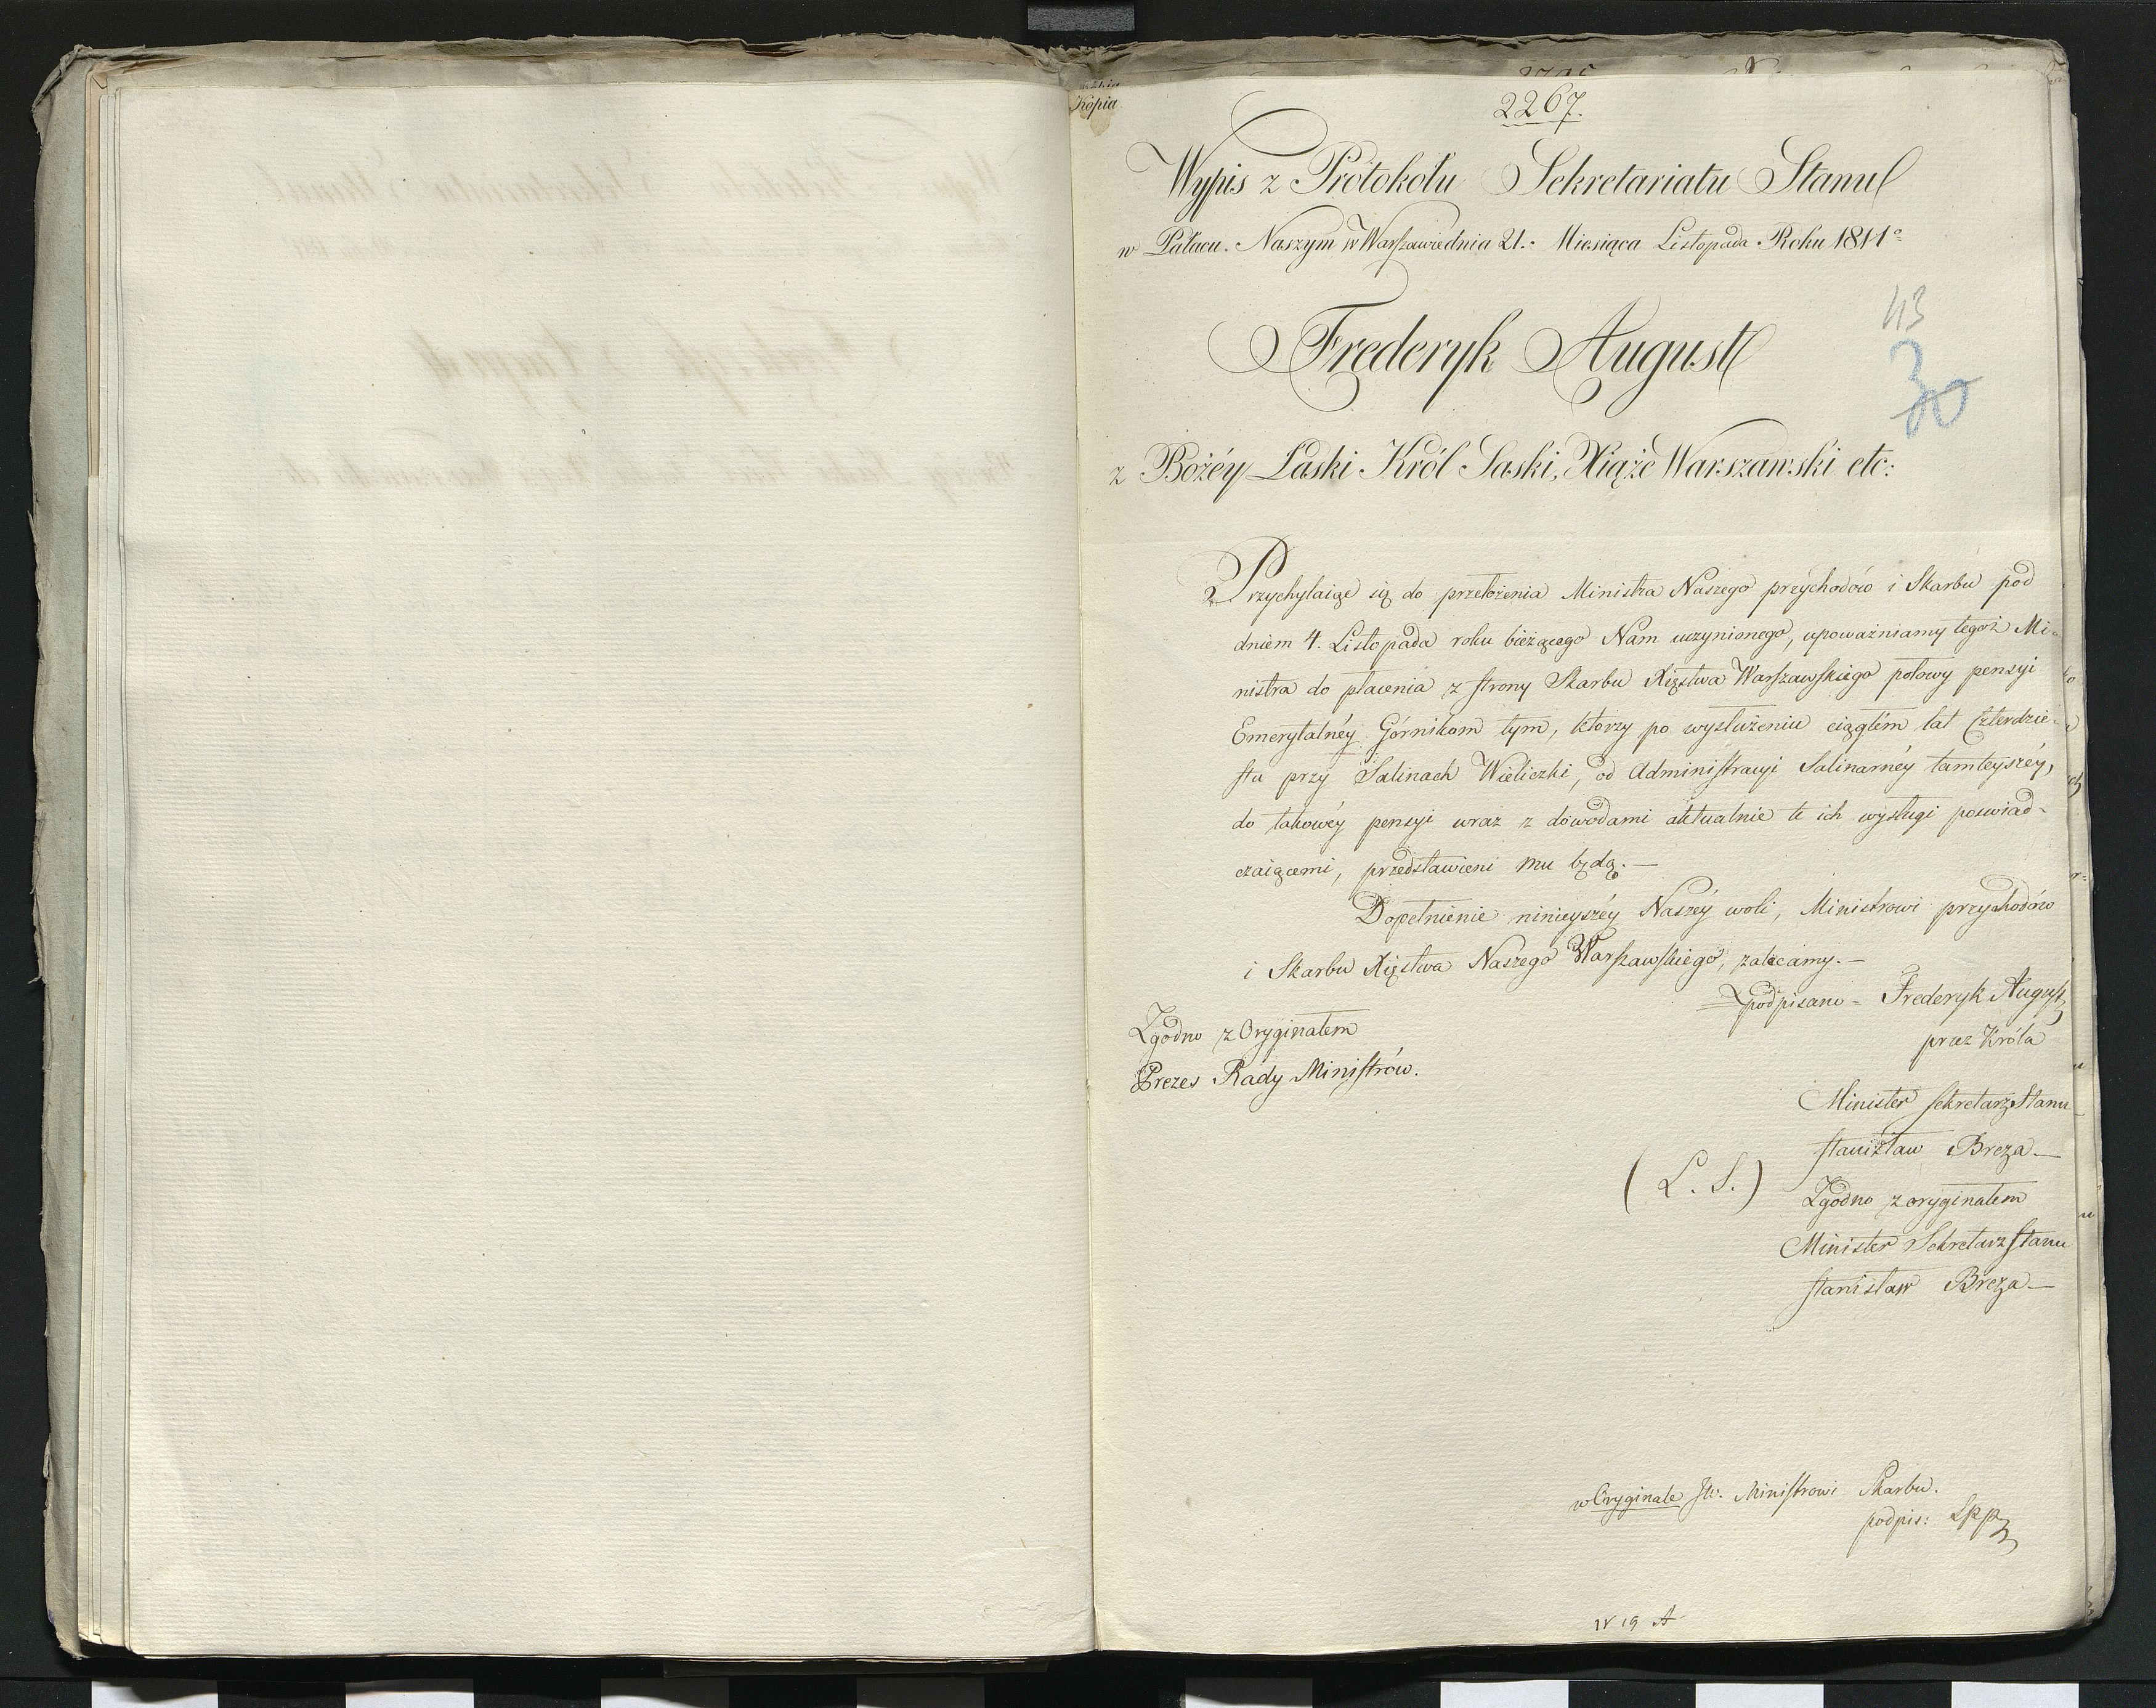 Kopia
2267.
Wypis z Protokołu Sekretariatu Stanu
w Pałacu Naszym w Warszawie dnia 21. Miesiąca Listopada Roku 1811
113
30
Frederyk August
z Bożéy Łaski Król Saski, Xiąże Warszawski etc:
Przychylaiąc się do przełożenia Ministra Naszego przychodów i Skarbu pod
dniem 4. Listopada roku bieżącego Nam uczynionego, upoważniamy tegoż Mi-
nistra do płacenia z strony Skarbu Xięstwa Warszawskiego połowy pensyi
Emerytalnéy Górnikom tym, ktorzy po wysłużeniu ciągłém lat Czterdzie-
stu przy Salinach Wieliczki, od Administracyi Salinarnéy tamteyszéy,
do takowéy pensyi wraz z dowodami aktualnie te ich wysługi poswiad-
czaiącemi, przedstawieni mu będą.—
Dopełnienie ninieyszéy Naszéy woli, Ministrowi przychodów
i Skarbu Xięstwa Naszego Warszawskiego, zalecamy.—
podpisano - Frederyk August
przez Króla
Zgodno z Oryginałem
Prezes Rady Ministrów.
Minister Sekretarz Stanu
Stanisław Breza—
(L. S.)
Zgodno z oryginałem
Minister Sekretarz Stanu
Stanisław Breza—
w Oryginale JW. Ministrowi Skarbu.
podpis: